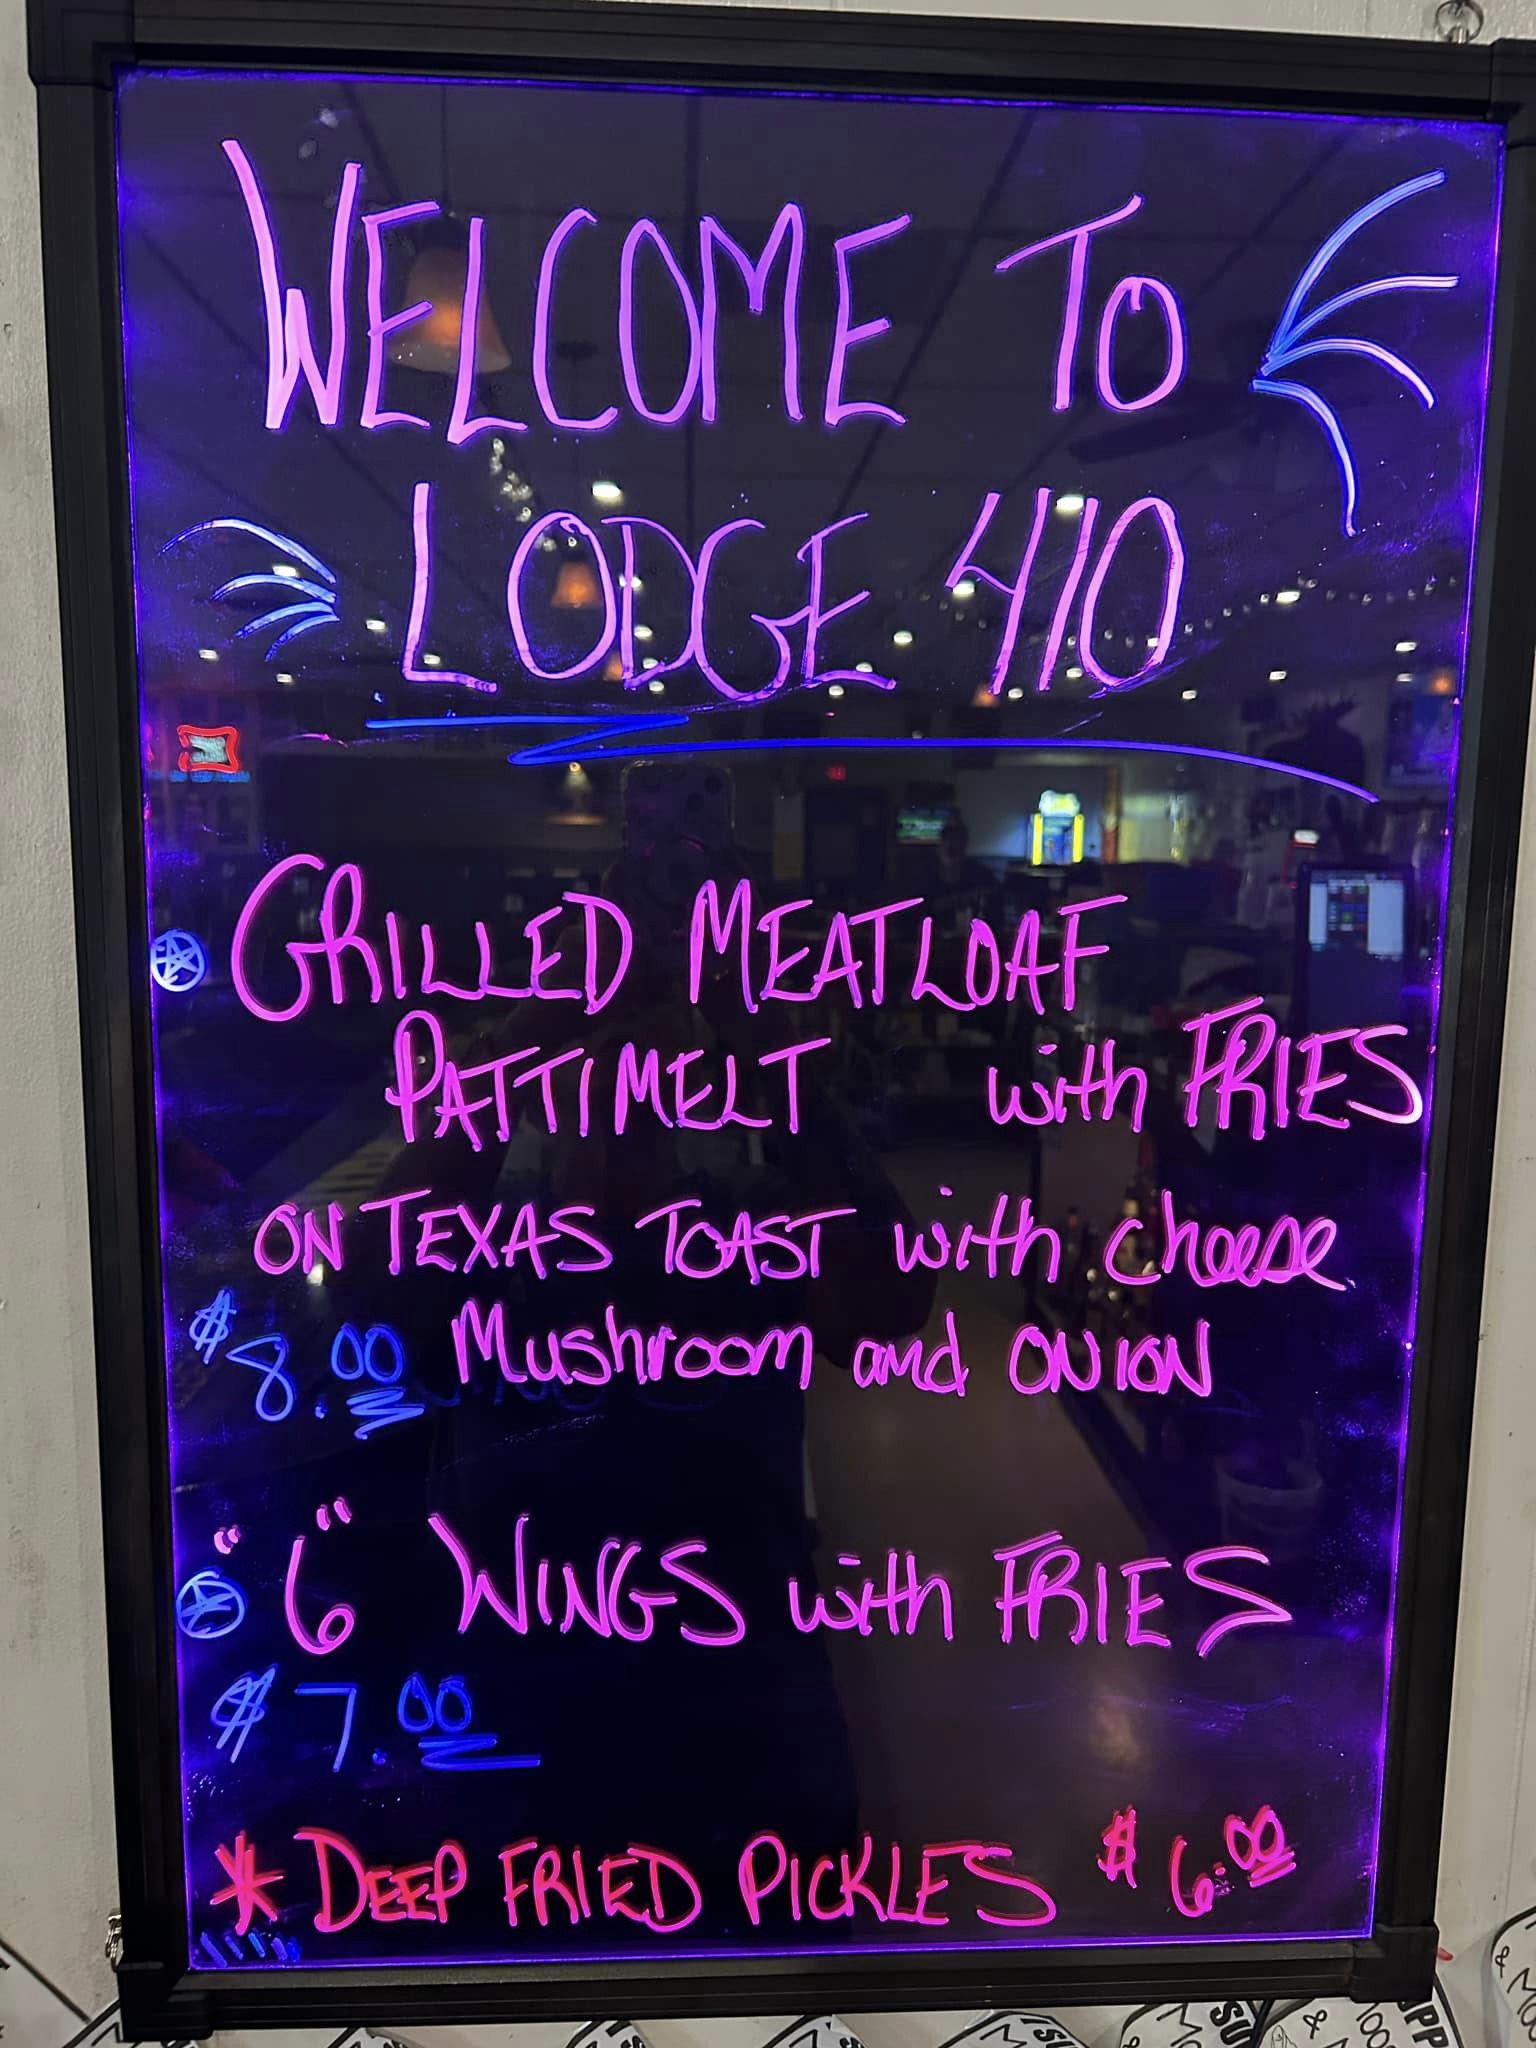 WELCOME TO
LODGE 410
GRILLED MEATLOAF
PATTIMELT with FRIES
ON TEXAS TOAST with cheese
$8.00 Mushroom and ONION
"6" WINGS with FRIES
$7.00
* DEEP FRIED PICKLES $6.00